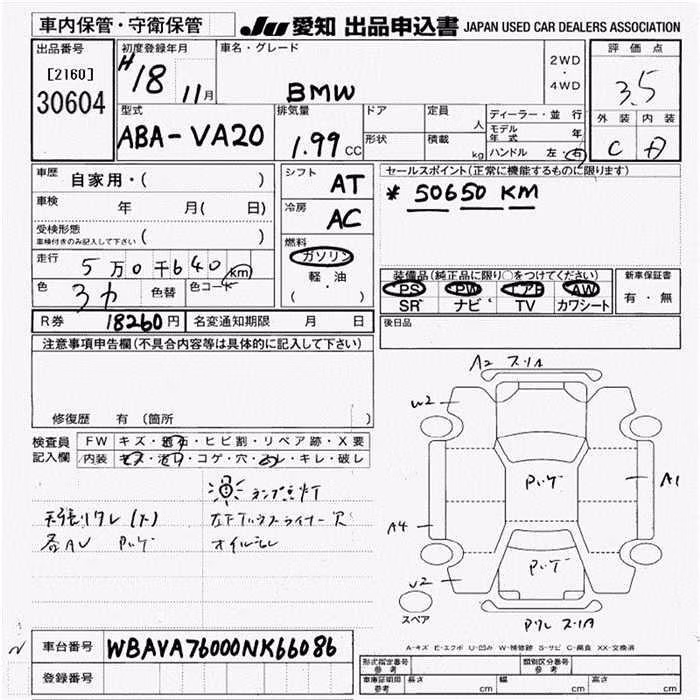 車内保管・守衛保管
JU 愛知 出品申込書 JAPAN USED CAR DEALERS ASSOCIATION
出品番号
[2160]
30604
初度登録年月
H18 11月
車名・グレード
BMW
2WD
・
4WD
評価点
3.5
外装 内装
C
型式
ABA-VA20
排気量
1.99 CC
ドア
形状
定員 人
積載 kg
ディーラー・並行
モデル年式 年
ハンドル 左・右
車歴 自家用・( )
車検 年 月( 日)
受検形態 ( )
車検付きのみ記入して下さい
走行 5万0千640km
色 色替 色コード
シフト AT
冷房 AC
燃料
ガソリン
軽・油
( )
セールスポイント(正常に機能するものに限ります)
* 50650 KM
装備品(純品に限り○をつけてください)
PS PW エアB AW
SR ナビ TV カワシート
新車保証書
有・無
R券 18260円 名変通知期限 月 日
後日品
注意事項申告欄(不具合内容等は具体的に記入して下さい)
修復歴 有 (箇所 )
検査員記入欄
FW キズ・飛石・ヒビ割・リペア跡・X要
内装 キズ・汚れ・コゲ・穴・スレ・キレ・破し
ランプ点灯
オイル
A2
W2
A1
A4
スペア
A-キズ E-エクボ U-凹み W-補修跡 S-サビ C-腐食 XX-交換済
車台番号 WBAVA76000NK66086
登録番号
形式指定番号 参考
類別区分番号 参考
車庫証明期間 参考
長さ cm 幅 cm 高さ cm